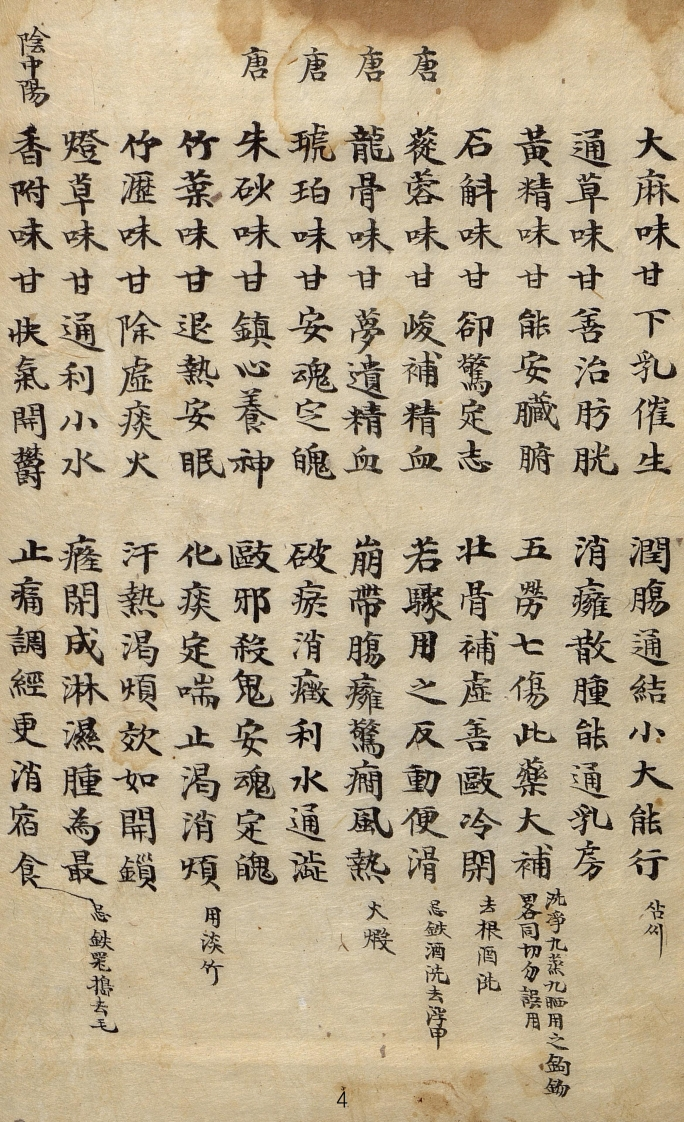 大麻味甘下乳催生潤腸通結小大能行삼씨
通草味甘善治肪胱消癰散腫能通乳房
黃精味甘能安臟腑五勞七傷此藥大補洗淨九蒸九晒用之鉤鋤畧同切勿誤用
石斛味甘卻驚定志壯骨補虛善歐冷閉去根酒洗
唐 蓯蓉味甘峻補精血若驟用之反動便滑忌鉄酒洗去浮甲
唐 龍骨味甘夢遺精血崩帶腸癰驚癎風熱火煅
唐 琥珀味甘安魂定魄破瘀消癥利水通澁
唐 朱砂味甘鎮心養神歐邪殺鬼安魂定魄
竹葉味甘退熱安眠化痰定喘止渴消煩用淡竹
竹瀝味甘除虛痰火汗熱渴煩效如開鎖
燈草味甘通利小水癃閉成淋濕腫為最
陰中陽 香附味甘快氣開鬱止痛調經更消宿食忌鉄器搗去毛
4